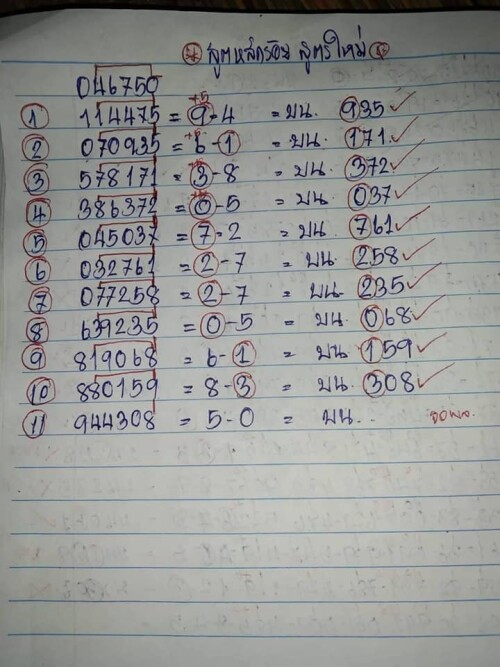 สูตรหลักร้อย สูตรใหม่
046750
+5
① 114475 = 9-4 = บน. 935 ✓
+5
② 070935 = 6-1 = บน. 171. ✓
+5
③ 578171 = 3-8 = บน. 372 ✓
+5
④ 386372 = 0-5 = บน. 037 ✓
⑤ 045037 = 7-2 = บน. 761 ✓
⑥ 032761 = 2-7 = บน. 258 ✓
⑦ 077258 = 2-7 = บน. 235 ✓
⑧ 639235 = 0-5 = บน. 068 ✓
⑨ 819068 = 6-1 = บน. 159 ✓
⑩ 880159 = 8-3 = บน. 308 ✓
⑪ 944308 = 5-0 = บน..